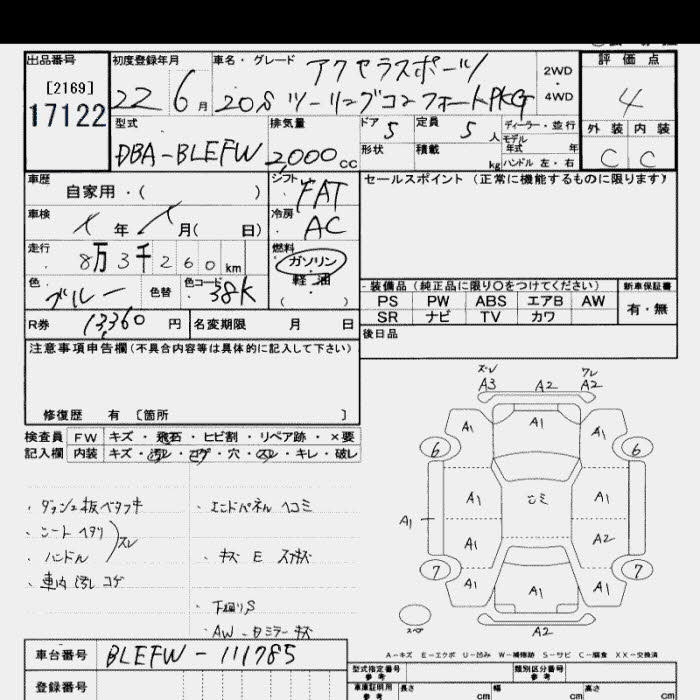 出品番号 初度登録年月 車名・グレード アクセラスポーツ 2WD 評価点
[2169] 22 6月 20S ツーリングコンフォートPKG 4WD 4
17122 型式 排気量 ドア 5 定員 5人 ディーラー・並行 外装 内装
DBA-BLEFW 2,000cc 形状 積載 kg モデル年式 年 ハンドル 左・右 C C
車歴 自家用・( ) シフト FAT セールスポイント(正常に機能するものに限ります)
車検 年 月( 日) 冷房 AC
走行 8万3千260km 燃料 ガソリン
色 ブルー 色替 色コード 38K 軽油 ( )
装備品(純正品に限り○をつけてください) 新車保証書
PS PW ABS エアB AW 有・無
SR ナビ TV カワ
R券 13,360円 名変期限 月 日 後日品
注意事項申告欄(不具合内容等は具体的に記入して下さい)
修復歴 有 〔箇所 〕
検査員 FW キズ・飛石・ヒビ割・リペア跡・×要
記入欄 内装 キズ・汚レ・コゲ・穴・スレ・キレ・破レ
ズレ ワレ
A3 A2 A2
A1 A1 A1
6 6
A1 A1 ミ A1
A1 A2
7 7
A1 A1 A1
スペア A2
・ダッシュ板ベタつき
・シートヘタリ スレ
・ハンドル
・車内汚レコゲ
・エンドパネルヘコミ
・キズ E
・下廻りS
・AW・ミラーキズ
A-キズ E-エクボ U-凹み W-補修跡 S-サビ C-腐食 XX-交換済
車台番号 BLEFW-111785
登録番号
型式指定番号 参考 類別区分番号 参考
車庫証明用 参考 長さ cm 幅 cm 高さ cm